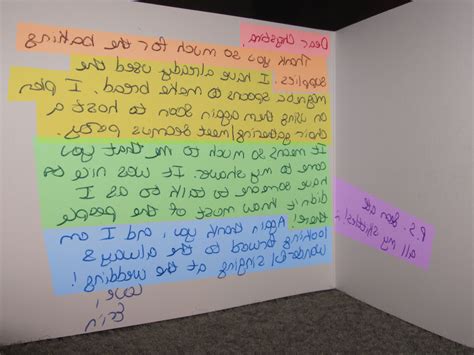 Dear Chrystina,
Thank you so much for the baking
supplies. I have already used the
magnetic spoons to make bread. I plan
on using them again soon to host a
choir gathering/meet Seamus party.
It means so much to me that you
came to my shower. It was nice to
have someone to talk to as I
didn't know most of the people
there! Again, thank you, and I am
looking forward to the always
wonderful singing at the wedding!
Love,
Erin
P.S. Sean ate
all my skittles!